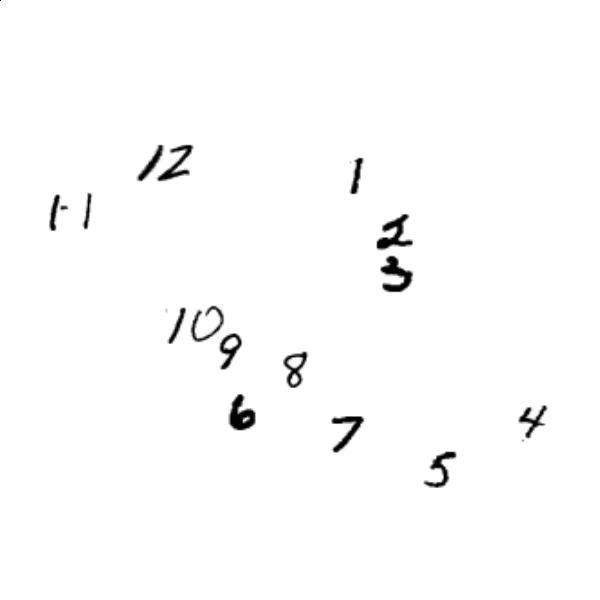 12
1
11
2
3
10
9
8
6
7
4
5